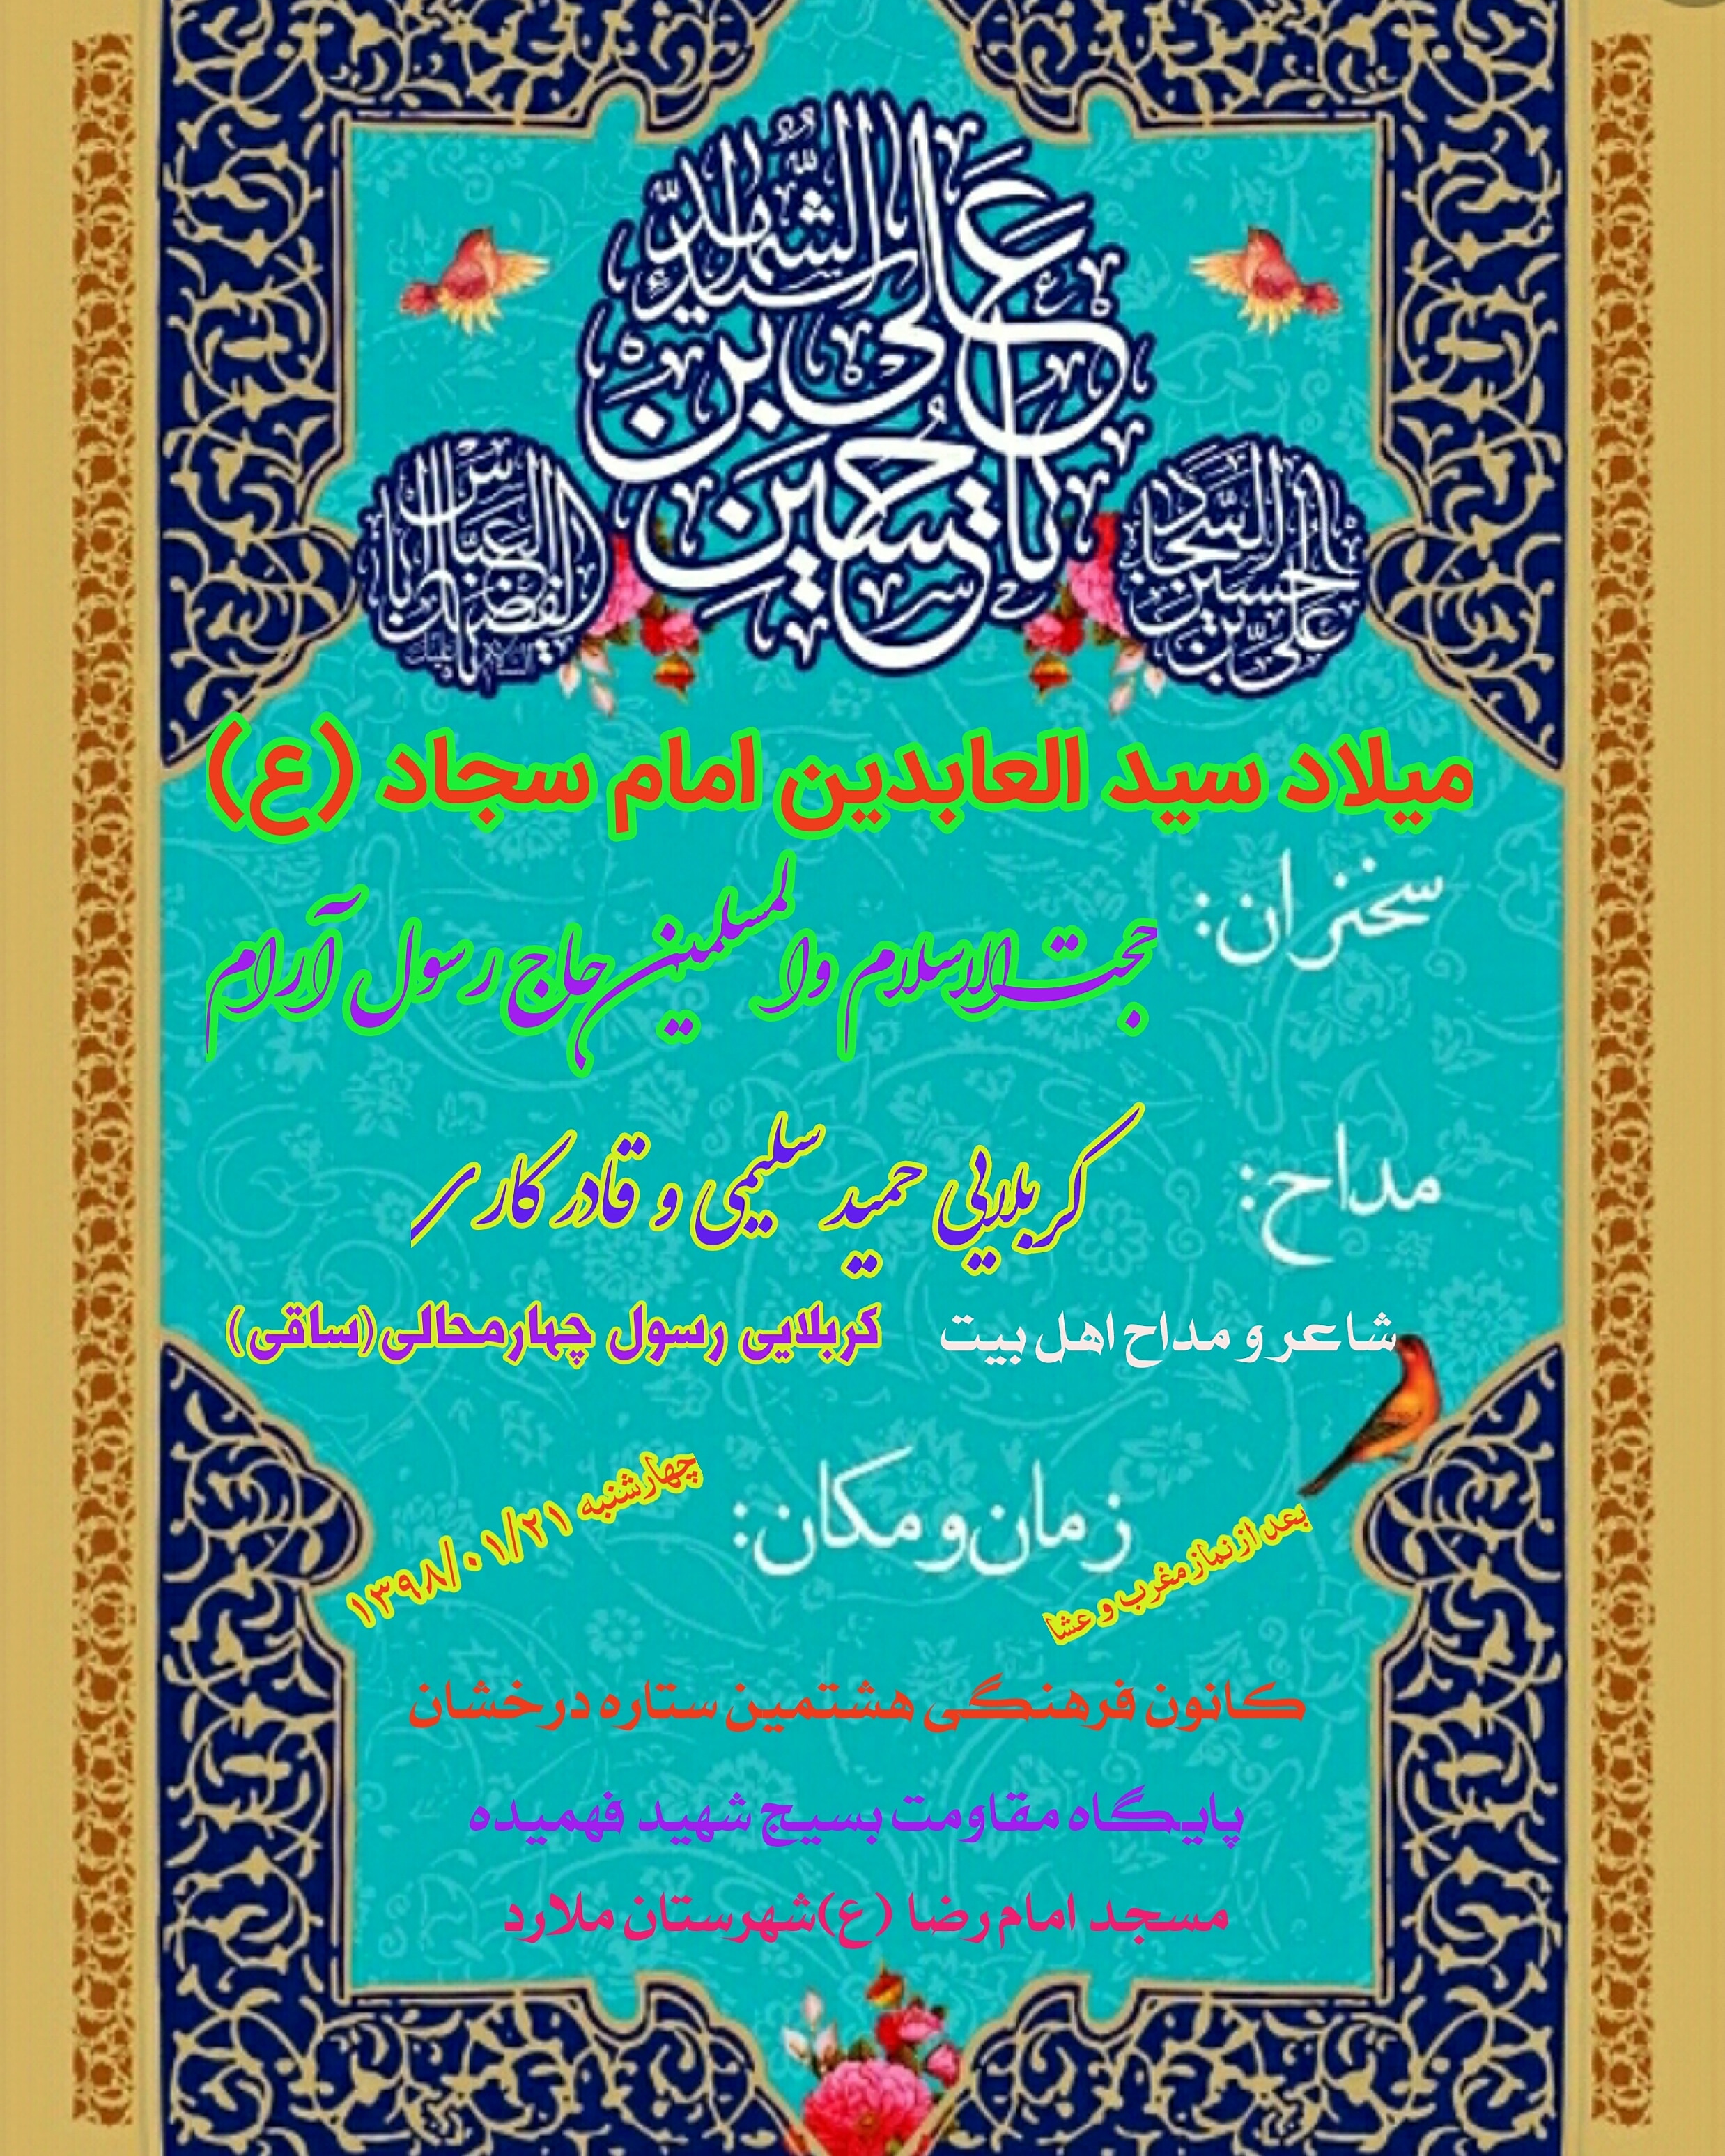 یا حسین بن علی سید الشهداء
علی بن الحسین السجاد
یا اباالفضل العباس
میلاد سید العابدین امام سجاد (ع)
سخنران:
حجت الاسلام والمسلمین حاج رسول آرام
مداح:
کربلایی حمید سلیمی و قادر کاری
شاعر و مداح اهل بیت کربلایی رسول چهارمحالی(ساقی)
زمان و مکان:
چهارشنبه ۱۳۹۸/۰۱/۲۱
بعد از نماز مغرب و عشا
کانون فرهنگی هشتمین ستاره درخشان
پایگاه مقاومت بسیج شهید فهمیده
مسجد امام رضا (ع)شهرستان ملارد